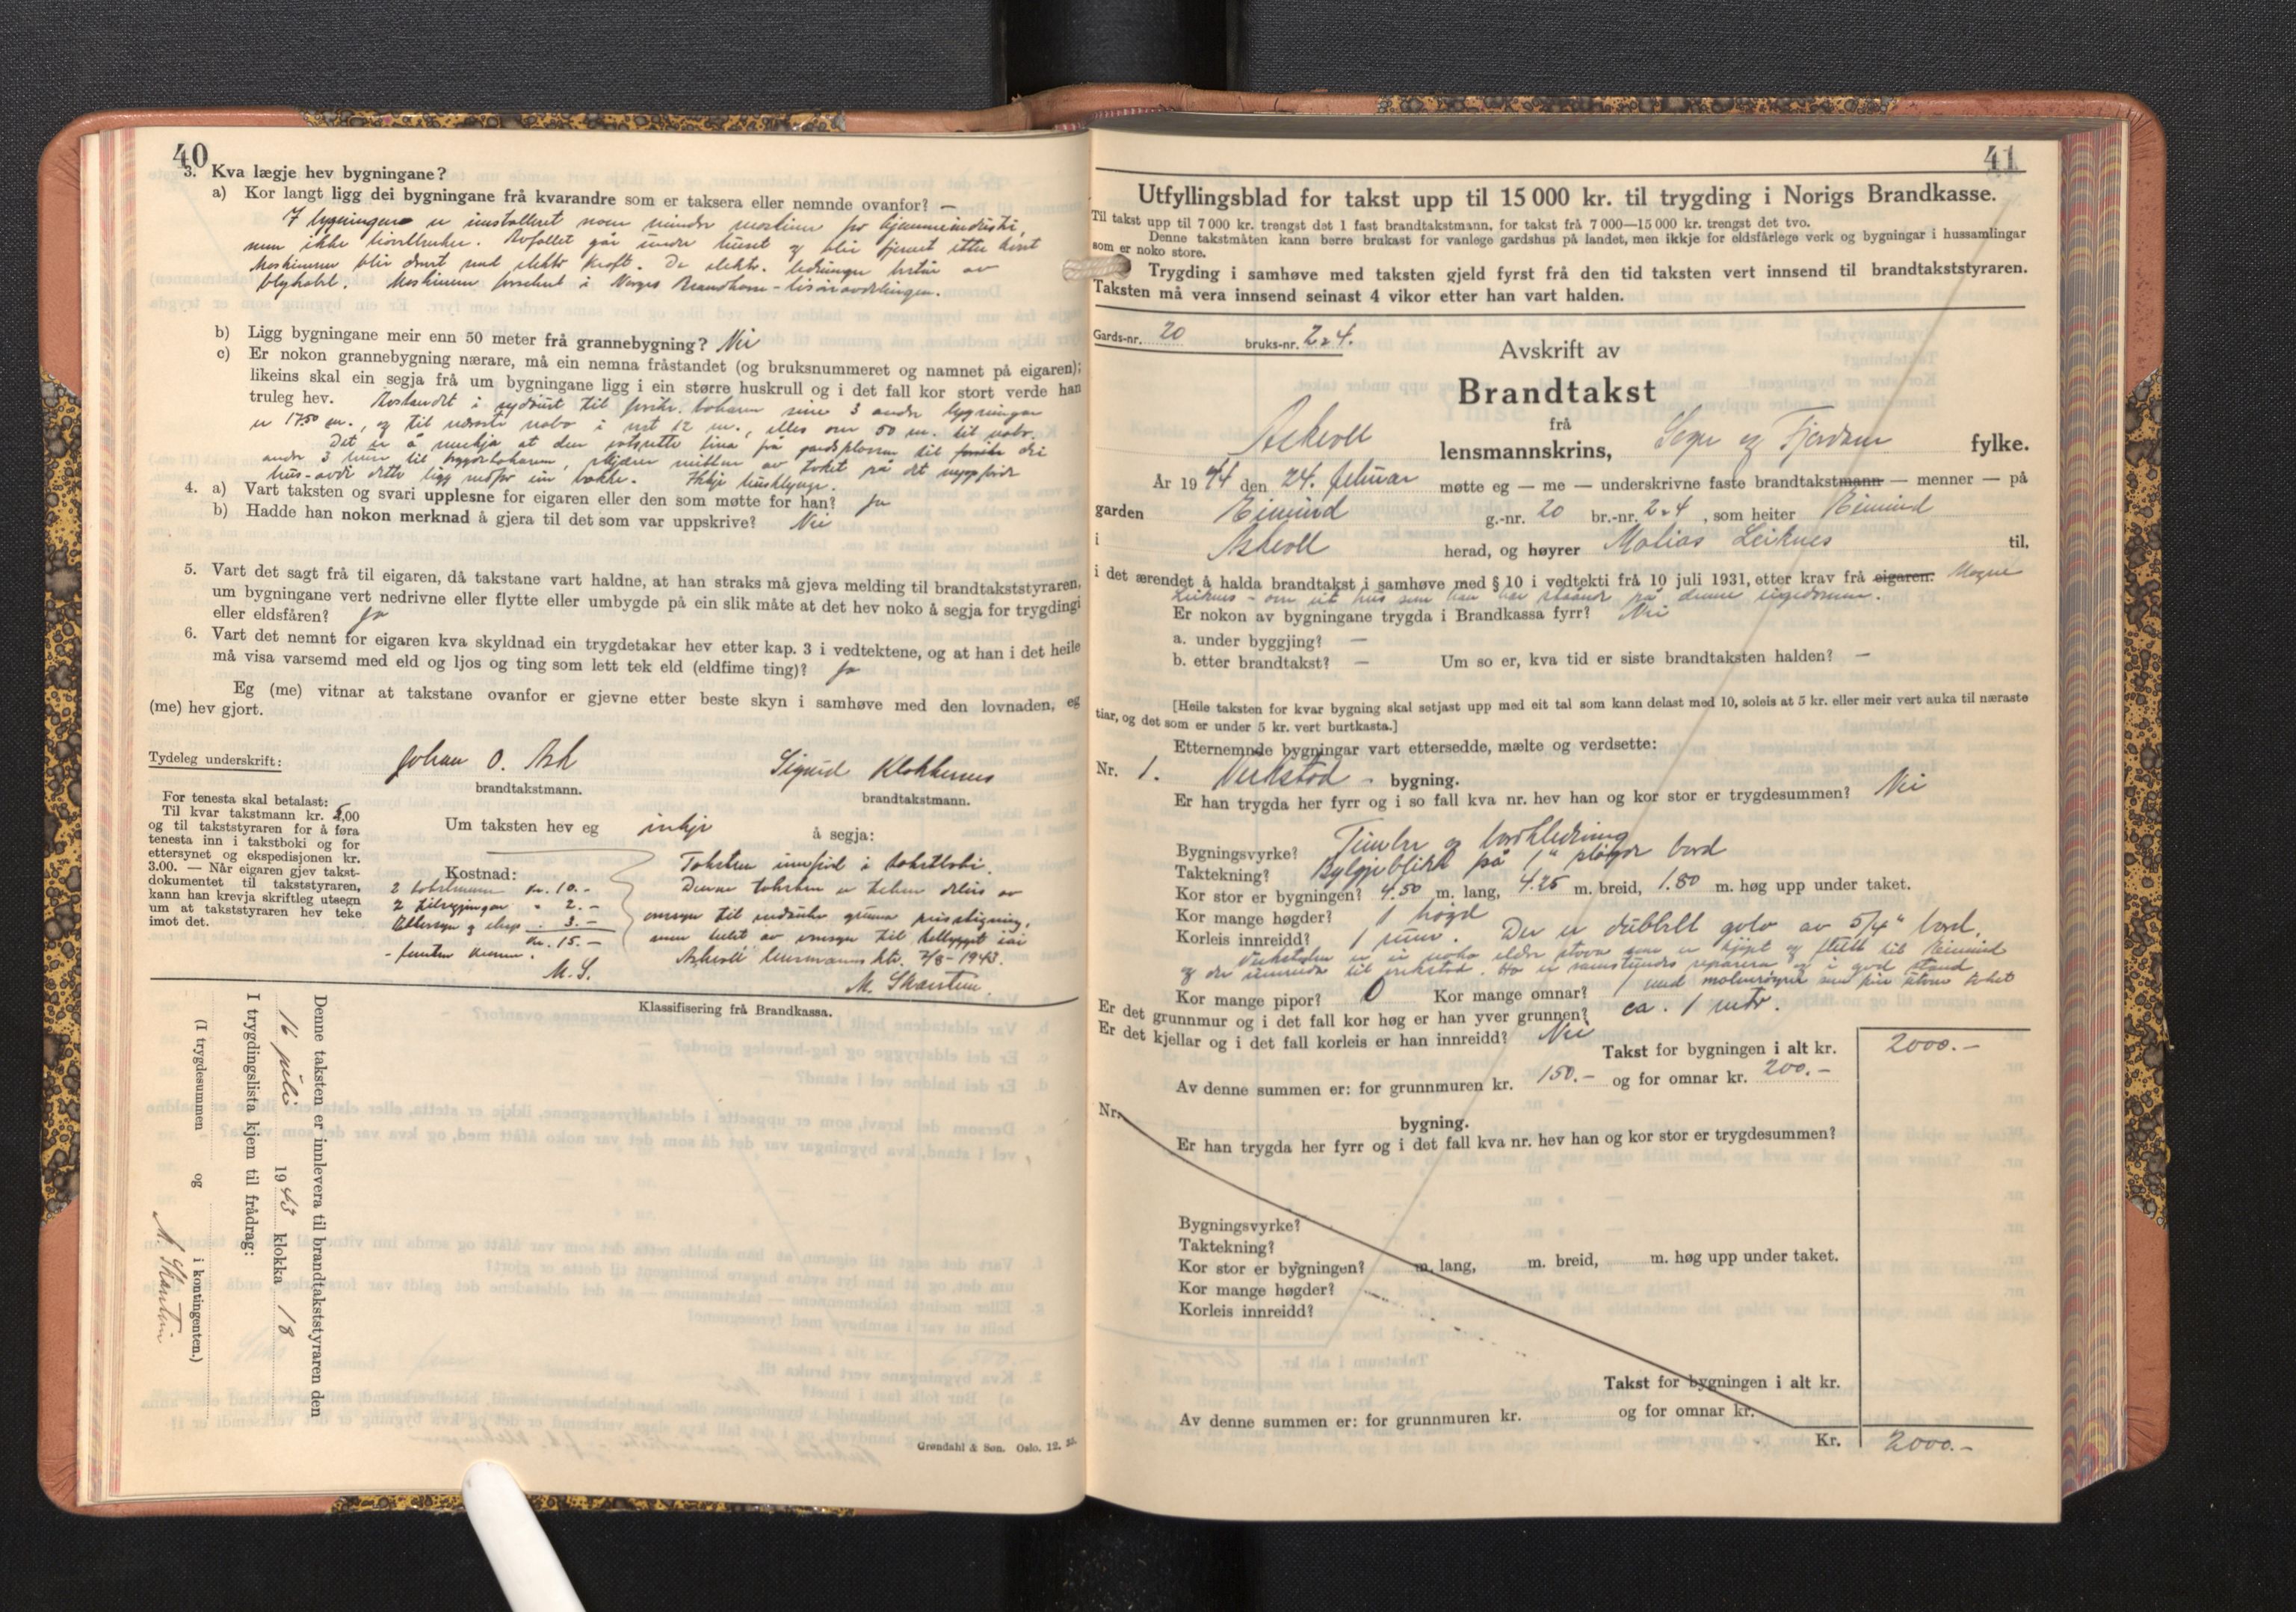 40
3. Kva lægje hev bygningane?
a) Kor langt ligg dei bygningane frå kvarandre som er taksera eller nemnde ovanfor? —
I bygningen er installeret noen mindre maskiner for hjemmeindustri,
men ikke tiovlbruker. Avfallet går under huset og blir fjernet etter hvert
Maskinene blir drevet med elektr. kraft. De elektr. ledninger består av
blykabel. Maskinene forsikret i Norges Brandkasse - lisøreavdelingen.
b) Ligg bygningane meir enn 50 meter frå grannebygning? Nei
c) Er nokon grannebygning nærare, må ein nemna fråstandet (og bruksnummeret og namnet på eigaren);
likeins skal ein segja frå um bygningane ligg i ein større huskrull og i det fall kor stort verde han
truleg hev. Avstandet i sydaust til forsikr. takaren sine 3 andre bygningar
er 17.50 m., og til næraste nabo i vest 12 m., elles over 50 m. til nabo.
Det er å merkja at den rotsette lina frå gardsplassen til dei
andre 3 hus til trygdetakaren, skjærer midten av taket på det uppførde
hus - avdi dette ligg nedfor ein bakke. Ikkje husklynge.
4. a) Vart taksten og svari upplesne for eigaren eller den som møtte for han? Ja
b) Hadde han nokon merknad å gjera til det som var uppskrive? Nei
5. Vart det sagt frå til eigaren, då takstane vart haldne, at han straks må gjeva melding til brandtakststyraren,
um bygningane vert nedrivne eller flytte eller umbygde på ein slik måte at det hev noko å segja for trygdingi
eller eldsfåren? Ja
6. Vart det nemnt for eigaren kva skyldnad ein trygdetakar hev etter kap. 3 i vedtektene, og at han i det heile
må visa varsemd med eld og ljos og ting som lett tek eld (eldfime ting)? Ja
Eg (me) vitnar at takstane ovanfor er gjevne etter beste skyn i samhøve med den lovnaden, eg
(me) hev gjort.
Tydeleg underskrift: Johan O. Ask Sigurd Klokkernes
brandtakstmann. brandtakstmann.
For tenesta skal betalast:
Til kvar takstmann kr. 5,00
og til takststyraren for å føra
tenesta inn i takstboki og for
ettersynet og ekspedisjonen kr.
3.00. — Når eigaren gjev takst-
dokumentet til takststyraren,
kann han krevja skriftleg utsegn
um at takststyraren hev teke
imot det.
Um taksten hev eg inkje å segja:
Kostnad:
2 takstmenn kr. 10.-
2 tilsegjingar " 2.-
Ettersyn og eksp. " 3.-
Kr. 15.-
- femten kroner.
M. S.
Taksten innførd i takstboki.
Denne taksten er teken utan av
omsyn til midr. grunna prisstigning,
men heile av omsyn til tilbygget i år
Askvoll lensmannsktr. 7/8-1943.
M. Skarstein.
Klassifisering frå Brandkassa.
Denne taksten er innlevera til brandtakststyraren den
16 juli 1943 klokka 18
I trygdingslista kjem til frådrag:
(I trygdesummen og i kontingenten.)
M. Skarstein
Grøndahl & Søn. Oslo. 12.
41
Utfyllingsblad for takst upp til 15 000 kr. til trygding i Norigs Brandkasse.
Til takst upp til 7 000 kr. trengst det 1 fast brandtakstmann, for takst frå 7 000—15 000 kr. trengst det tvo.
Denne takstmåten kann berre brukast for vanlege gardshus på landet, men ikkje for eldsfårlege verk og bygningar i hussamlingar
som er noko store.
Trygding i samhøve med taksten gjeld fyrst frå den tid taksten vert innsend til brandtakststyraren.
Taksten må vera innsend seinast 4 vikor etter han vart halden.
Gards-nr. 20 bruks-nr. 2 - 4.
Avskrift av
Brandtakst
frå
Askvoll lensmannskrins, Sogn og Fjordane fylke.
År 1944 den 24. februar møtte eg — me — underskrivne faste brandtakstmann — menner — på
garden Eimind g.-nr. 20 br.-nr. 2-4, som heiter Eimind
i Askvoll herad, og høyrer Matias Leiknes til,
i det ærendet å halda brandtakst i samhøve med § 10 i vedtekti frå 10 juli 1931, etter krav frå eigaren: Magne
Leiknes - om eit hus som han har ståande på denne eigedomen.
Er nokon av bygningane trygda i Brandkassa fyrr? Nei
a. under byggjing? —
b. etter brandtakst? — Um so er, kva tid er siste brandtaksten halden? —
[Heile taksten for kvar bygning skal setjast upp med eit tal som kann delast med 10, soleis at 5 kr. eller meir vert auka til næraste
tiar, og det som er under 5 kr. vert burtkasta.]
Etternemnde bygningar vart ettersedde, mælte og verdsette:
Nr. 1. Verkstad - bygning.
Er han trygda her fyrr og i so fall kva nr. hev han og kor stor er trygdesummen? Nei
Bygningsvyrke? Timbr og bordkledning
Taktekning? Bylgjeblikk på 1" pløgde bord
Kor stor er bygningen? 4.50 m. lang, 4.25 m. breid, 1.80 m. høg upp under taket.
Kor mange høgder? 1 høgd
Korleis innreidd? 1 rum. Der er dubbelt golv av 5/4" bord.
Verkstaden er ei noko eldre stova som er kjøpt og flutt til Eimind
og der innreida til verkstad. Ho er samstundes reparera og i god stand
Kor mange pipor? 0 Kor mange omnar? 1 med molnrøyr som pipe utover taket
Er det grunnmur og i det fall kor høg er han yver grunnen? ca. 1 mtr.
Er det kjellar og i det fall korleis er han innreidd? Nei
Takst for bygningen i alt kr. 2000.-
Av denne summen er: for grunnmuren kr. 150.- og for omnar kr. 200.-
Nr. bygning.
Er han trygda her fyrr og i det fall kva nr. hev han og kor stor er trygdesummen?
Bygningsvyrke?
Taktekning?
Kor stor er bygningen? m. lang, m. breid, m. høg upp under taket.
Kor mange høgder?
Korleis innreidd?
Takst for bygningen i alt kr.
Av denne summen er: for grunnmuren kr. og for omnar kr.
Kr. 2000.-